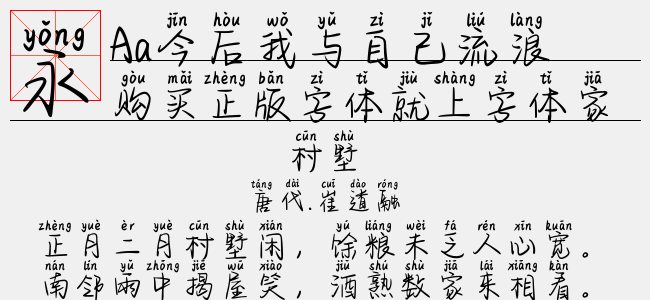 yǒng
永
jīn hòu wǒ yǔ zì jǐ liú làng
Aa今后我与自己流浪
gòu mǎi zhèng bǎn zì tǐ jiù shàng zì tǐ jiā
购买正版字体就上字体家
cūn shù
村墅
táng dài cuī dào róng
唐代.崔道融
zhèng yuè èr yuè cūn shù xián yú liáng wèi fá rén xīn kuān
正月二月村墅闲，馀粮未乏人心宽。
nán lín yǔ zhōng jiē wū xiào jiǔ shú shù jiā lái xiāng kàn
南邻雨中揭屋笑，酒熟数家来相看。